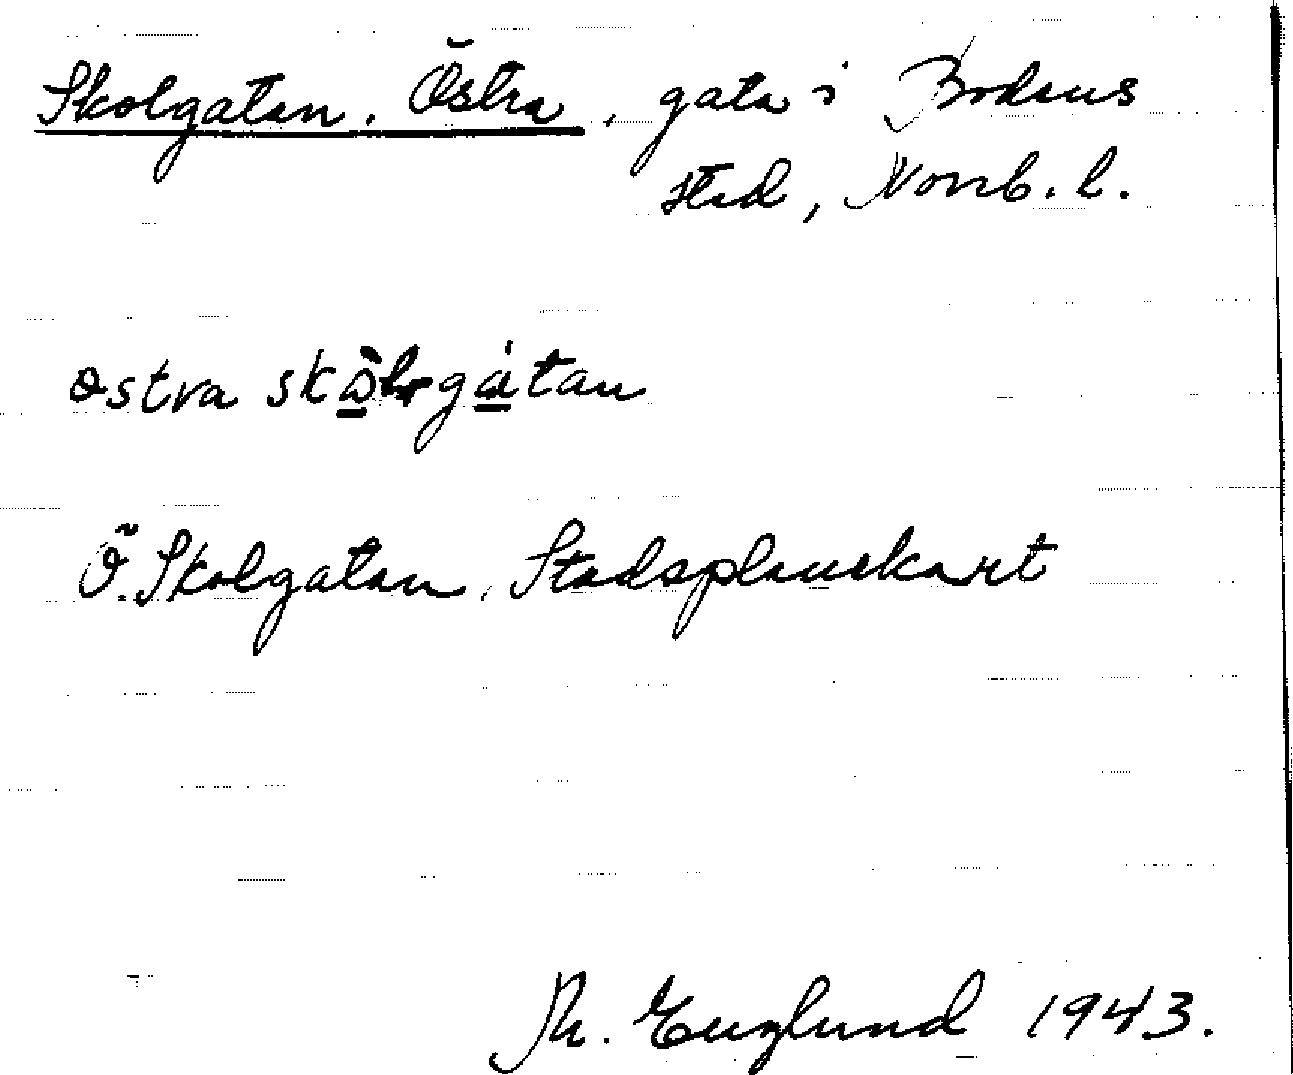 Skolgatan, Östra, gata i Bodens
stad, Norrb. l.
östra skò̱lgá̱tan
Ö. Skolgatan, Stadsplanekart
Th. Englund 1943.